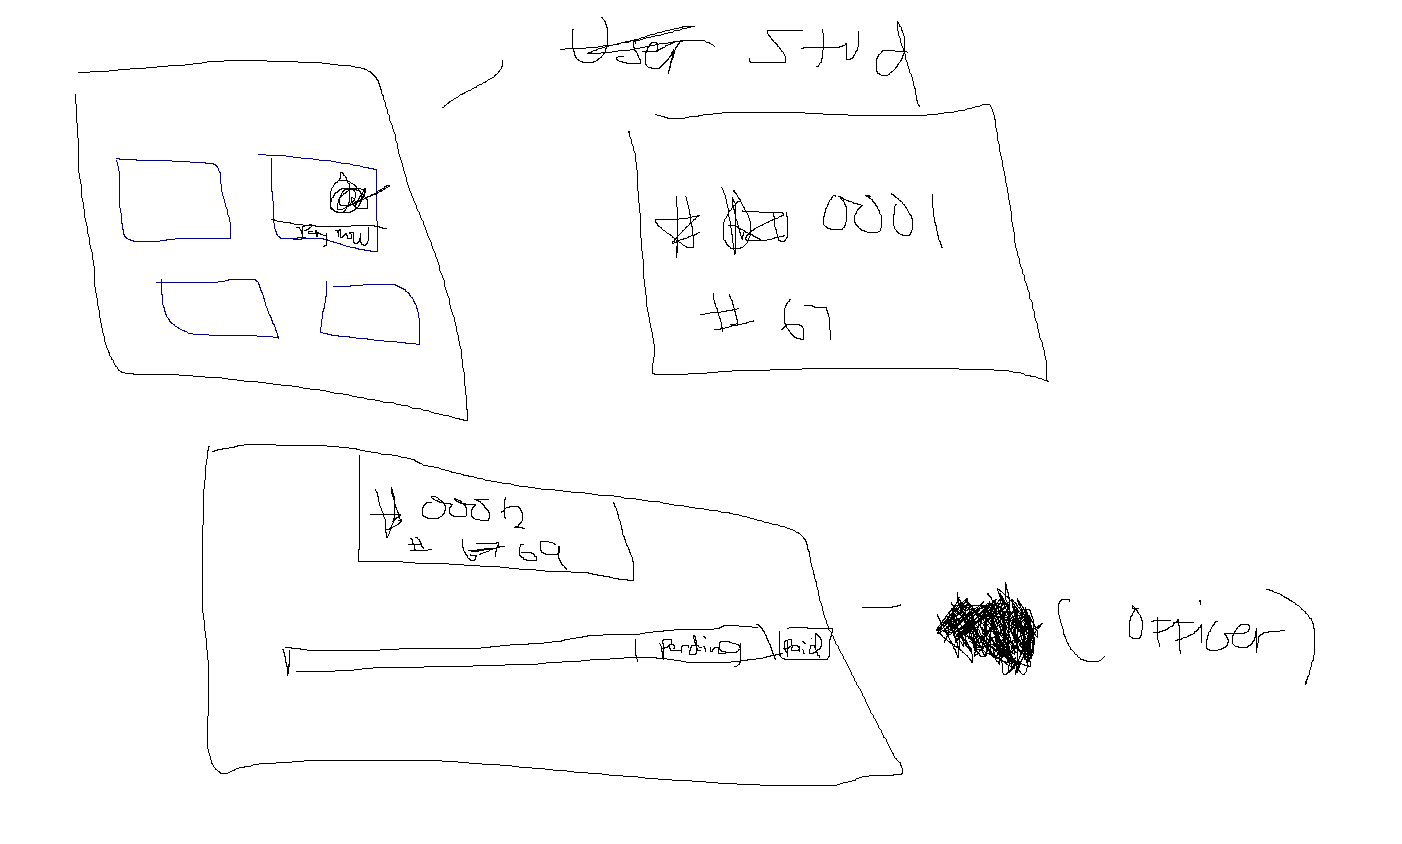 User Stud
Pay now
# 0001
# 67
# 0002
# 67 69
pending paid
(Officer)